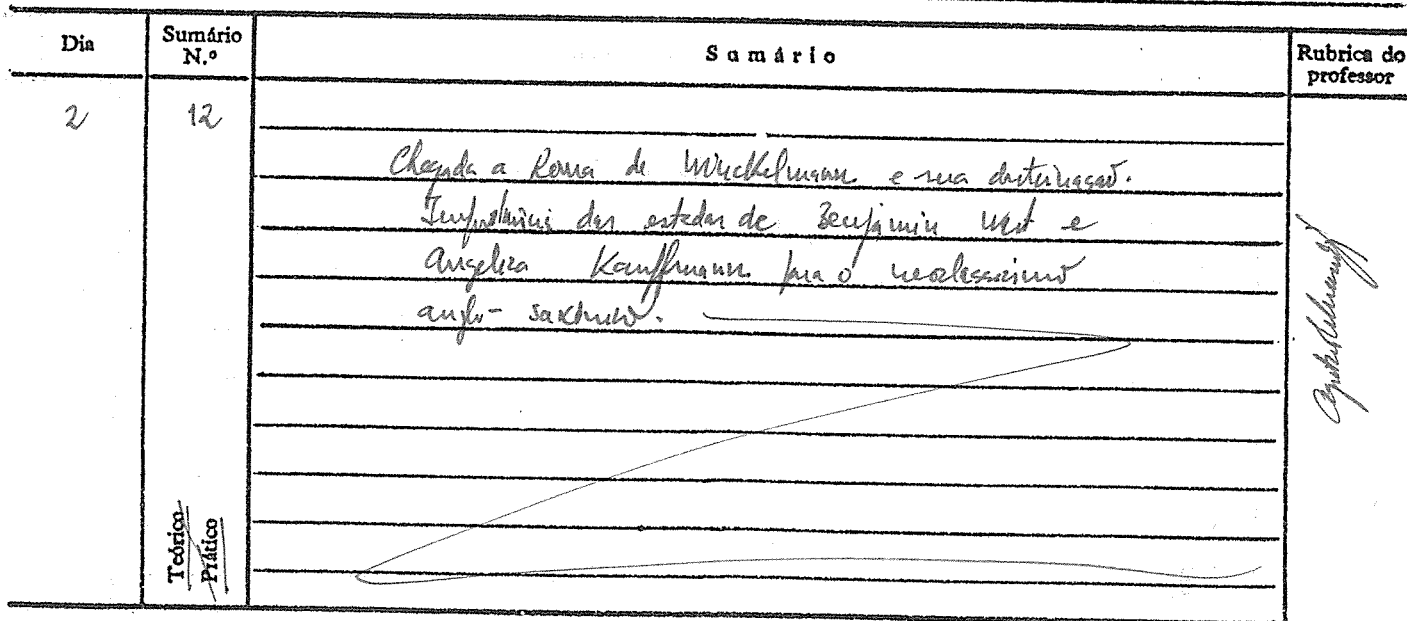 Dia
Sumário N.º
Sumário
Rubrica do professor
2
12
Chegada a Roma de Winckelmann e sua
Importância das estadas de Benjamin West e
Angelica Kauffmann para o neoclassicismo
anglo-saxónico.
Teórico
Prático